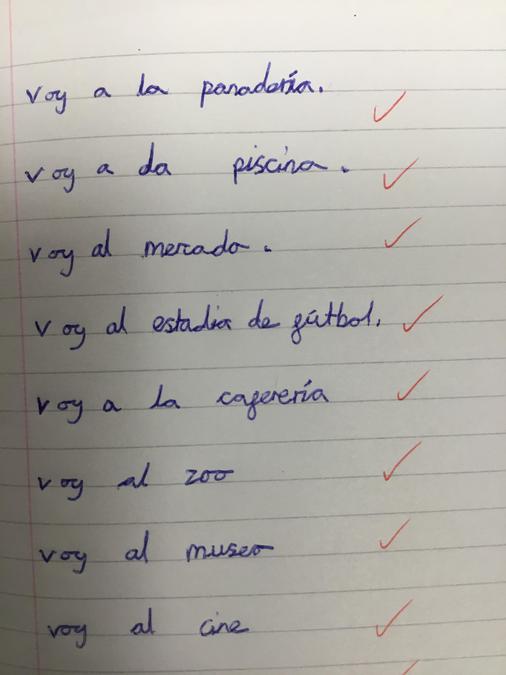 voy a la panadería.
voy a da piscina.
voy al mercado.
voy al estadio de fútbol.
voy a la caferería
voy al zoo
voy al museo
voy al cine